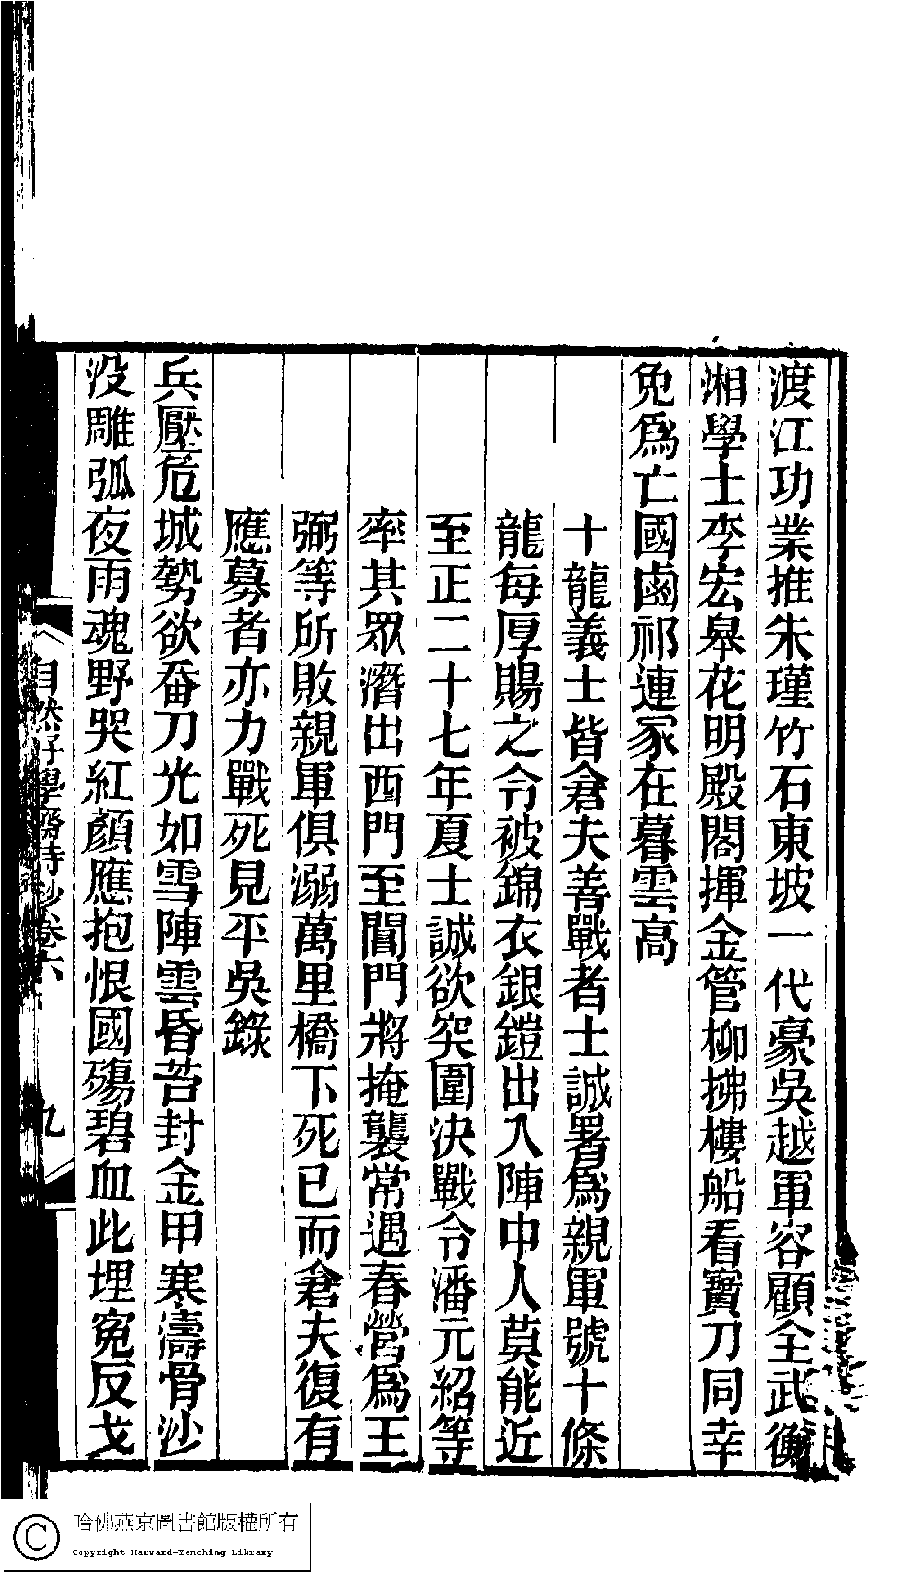 渡江功業推朱瑾竹石東坡一代豪吳越軍容顧全武衡
湘學士李宏皋花明殿閣揮金管柳拂樓船看寶刀同幸
免爲亡國鹵祁連冢在暮雲高
十龍義士皆倉夫善戰者士誠署爲親軍號十條
龍每厚賜之令被錦衣銀鎧出入陣中人莫能近
至正二十七年夏士誠欲突圍決戰令潘元紹等
率其眾潛出西門至閶門將掩襲常遇春營爲王
弼等所敗親軍俱溺萬里橋下死已而倉夫復有
應募者亦力戰死見平吳錄
兵壓危城勢欲奔刀光如雪陣雲昏苔封金甲寒濤骨沙
没雕弧夜雨魂野哭紅顏應抱恨國殤碧血此埋寃反戈
自然好學齋詩鈔卷六
九
哈佛燕京圖書館版權所有
Copyright Harvard-Yenching Library